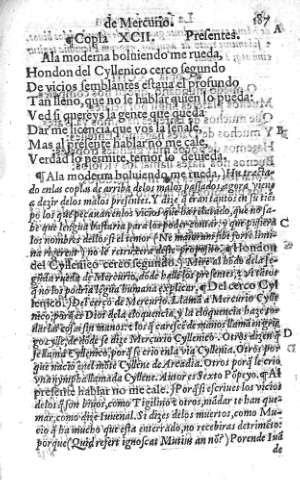 de Mercurio. 187
¶Copla XCII. Presentes. A
Ala moderna boluiendo me rueda,
Hondon del Cyllenico cerco segundo
De vicios semblantes estaua el profundo
Tan lleno, que no se hablar quien lo pueda.
Ved si quereys la gente que queda
Dar me licencia que vos la señale,
Mas al presente hablar no me cale,
Verdad lo permite, temor lo deuieda.
¶Ala moderna boluiendo me rueda.) Ha tracta
do enlas coplas de arriba delos malos passados, agora viene
a dezir delos malos presentes. Y dize q̃ eran tantos en su tiẽ
po los que pecauan enlos vicios que
be que lengua bastaria para los poder contar, y que pusiera C
los nombres dellos si el temor
no le retr ¶Hondon
del Cyllenico cerco segundo.) Mire al hõdo dela se-
gunda rueda de Mercurio, dõde halle los presentes,
q̃ no los podria lẽgua humana explicar. ¶Del cerco Cyl
lenico.) Del cerco de Mercurio. Llama a Mercurio Cylle
nico: porq̃ es Dios dela eloquencia, y la eloquencia haze per
der la cosa sin manos: e los q̃ carescẽ de manos llamã en grie
go cylle, de dõde se dize Mercurio Cyllenico. Otros dizen q̃ D
se llama Cyllenico, porq̃ se crio enla via Cyllenia. Otros por
que nacio enel mõte Cyllene de Arcadia. Otros porq̃ le crio
vna nympha llamada Cyllene. Autor es Sexto Põpeyo. ¶Al
presente hablar no me cale.) Porq̃ si escriues los vicios
delos q̃ son biuos, como Tigilino e otros, mãdar te han que-
mar, como dize Iuuenal. Si dizes delos muertos, como Mu-
cio q̃ ha mucho que esta enterrado, no recibiras detrimẽto:
porque (Quid refert ignoscat Mutius an nõ?) Porende Iuã
de